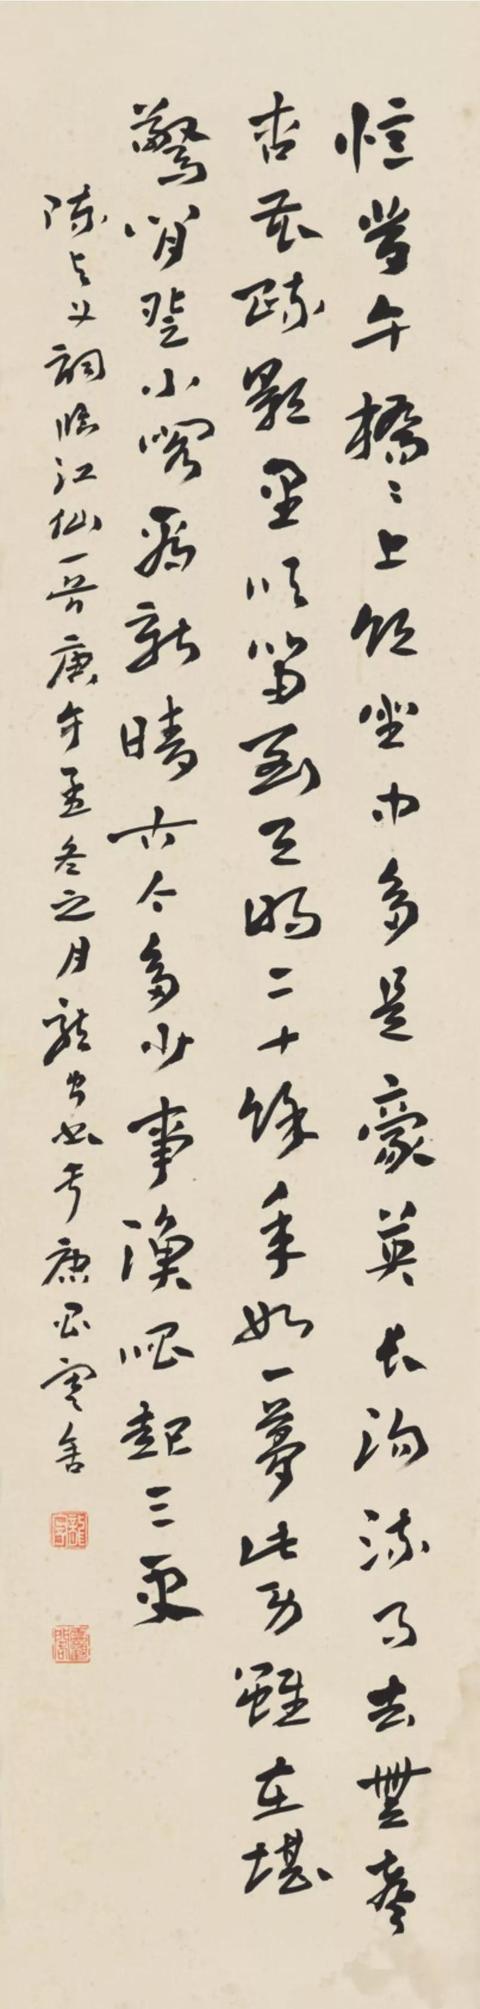 憶午橋〻上飲坐中多是豪英長溝流月去無聲
杏花疏影里吹笛到天明二十餘年如一夢此身雖在堪
驚閒登小閣看新晴古今多少事漁唱起三更
陳与义詞臨江仙一首庚午孟冬之月龍書于康寓舍